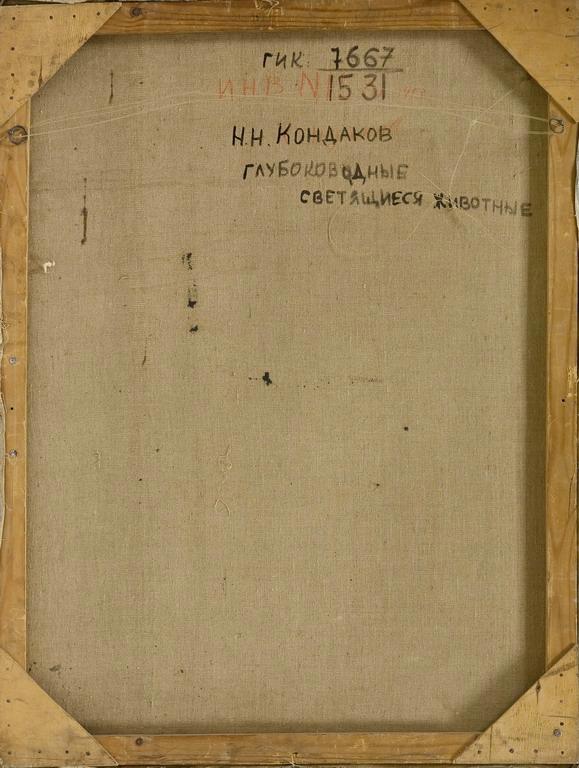 ГИК 7667
ИНВ N 1531
Н.Н. КОНДАКОВ
ГЛУБОКОВОДНЫЕ
СВЕТЯЩИЕСЯ ЖИВОТНЫЕ